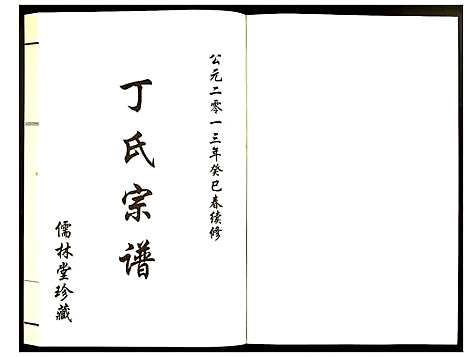 公元二零一三年癸巳春续修
丁氏宗谱
儒林堂珍藏